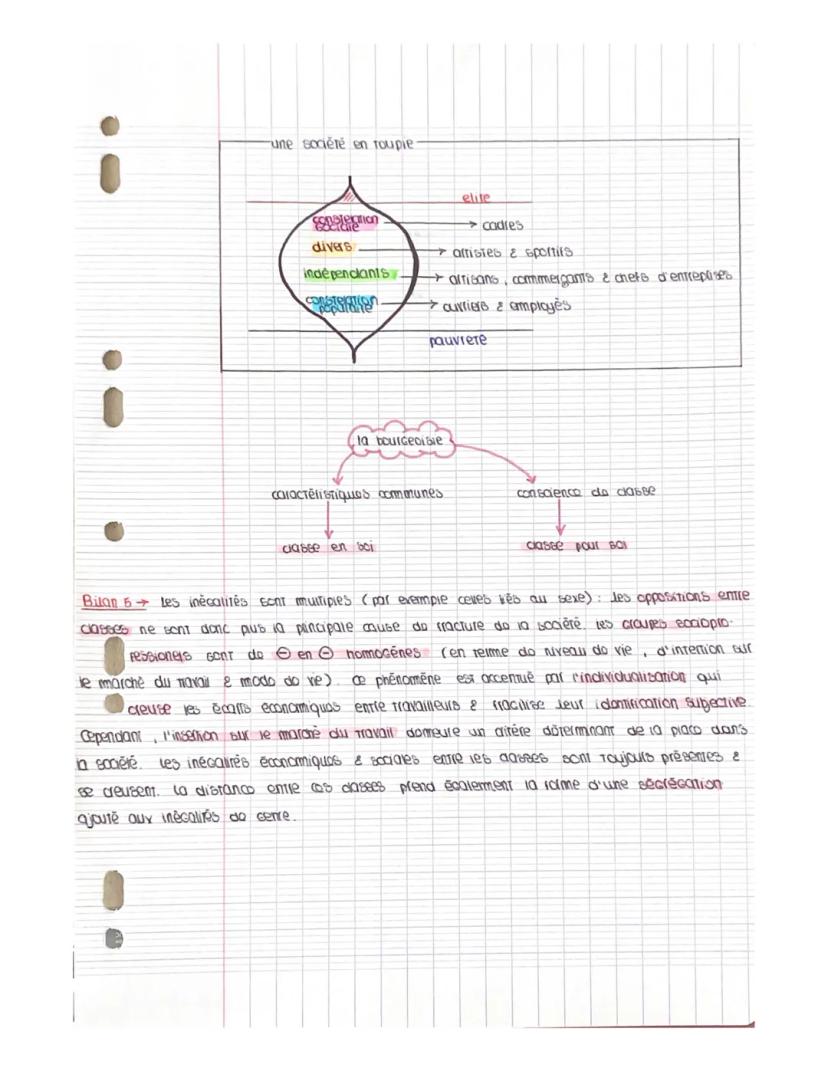 une société en toupie
elite
constelation
sociale
cadres
divers
artistes & sportifs
indépendants
artisans, commerçants & chefs d'entreprises
constelation
populaire
ouvriers & employés
pauvreté
la bourgeoisie
caractéristiques communes
conscience de classe
classe en soi
classe pour soi
Bilan 5 → les inégalités sont multiples (par exemple celles liés au sexe) : les oppositions entre
classes ne sont donc plus la principale cause de fracture de la société. les groupes sociopro-
fessionels sont de ⊖ en ⊖ homogènes (en terme de niveau de vie, d'intention sur
le marché du travail & mode de vie). ce phénomène est accentué par l'individualisation qui
creuse les écarts économiques entre travailleurs & fragilise leur identification subjective.
Cependant, l'insertion sur le marché du travail demeure un critère déterminant de la place dans
la société. les inégalités économiques & sociales entre les classes sont toujours présentes &
se creusent. la distance entre ces classes prend également la forme d'une ségrégation
ajouté aux inégalités de genre.